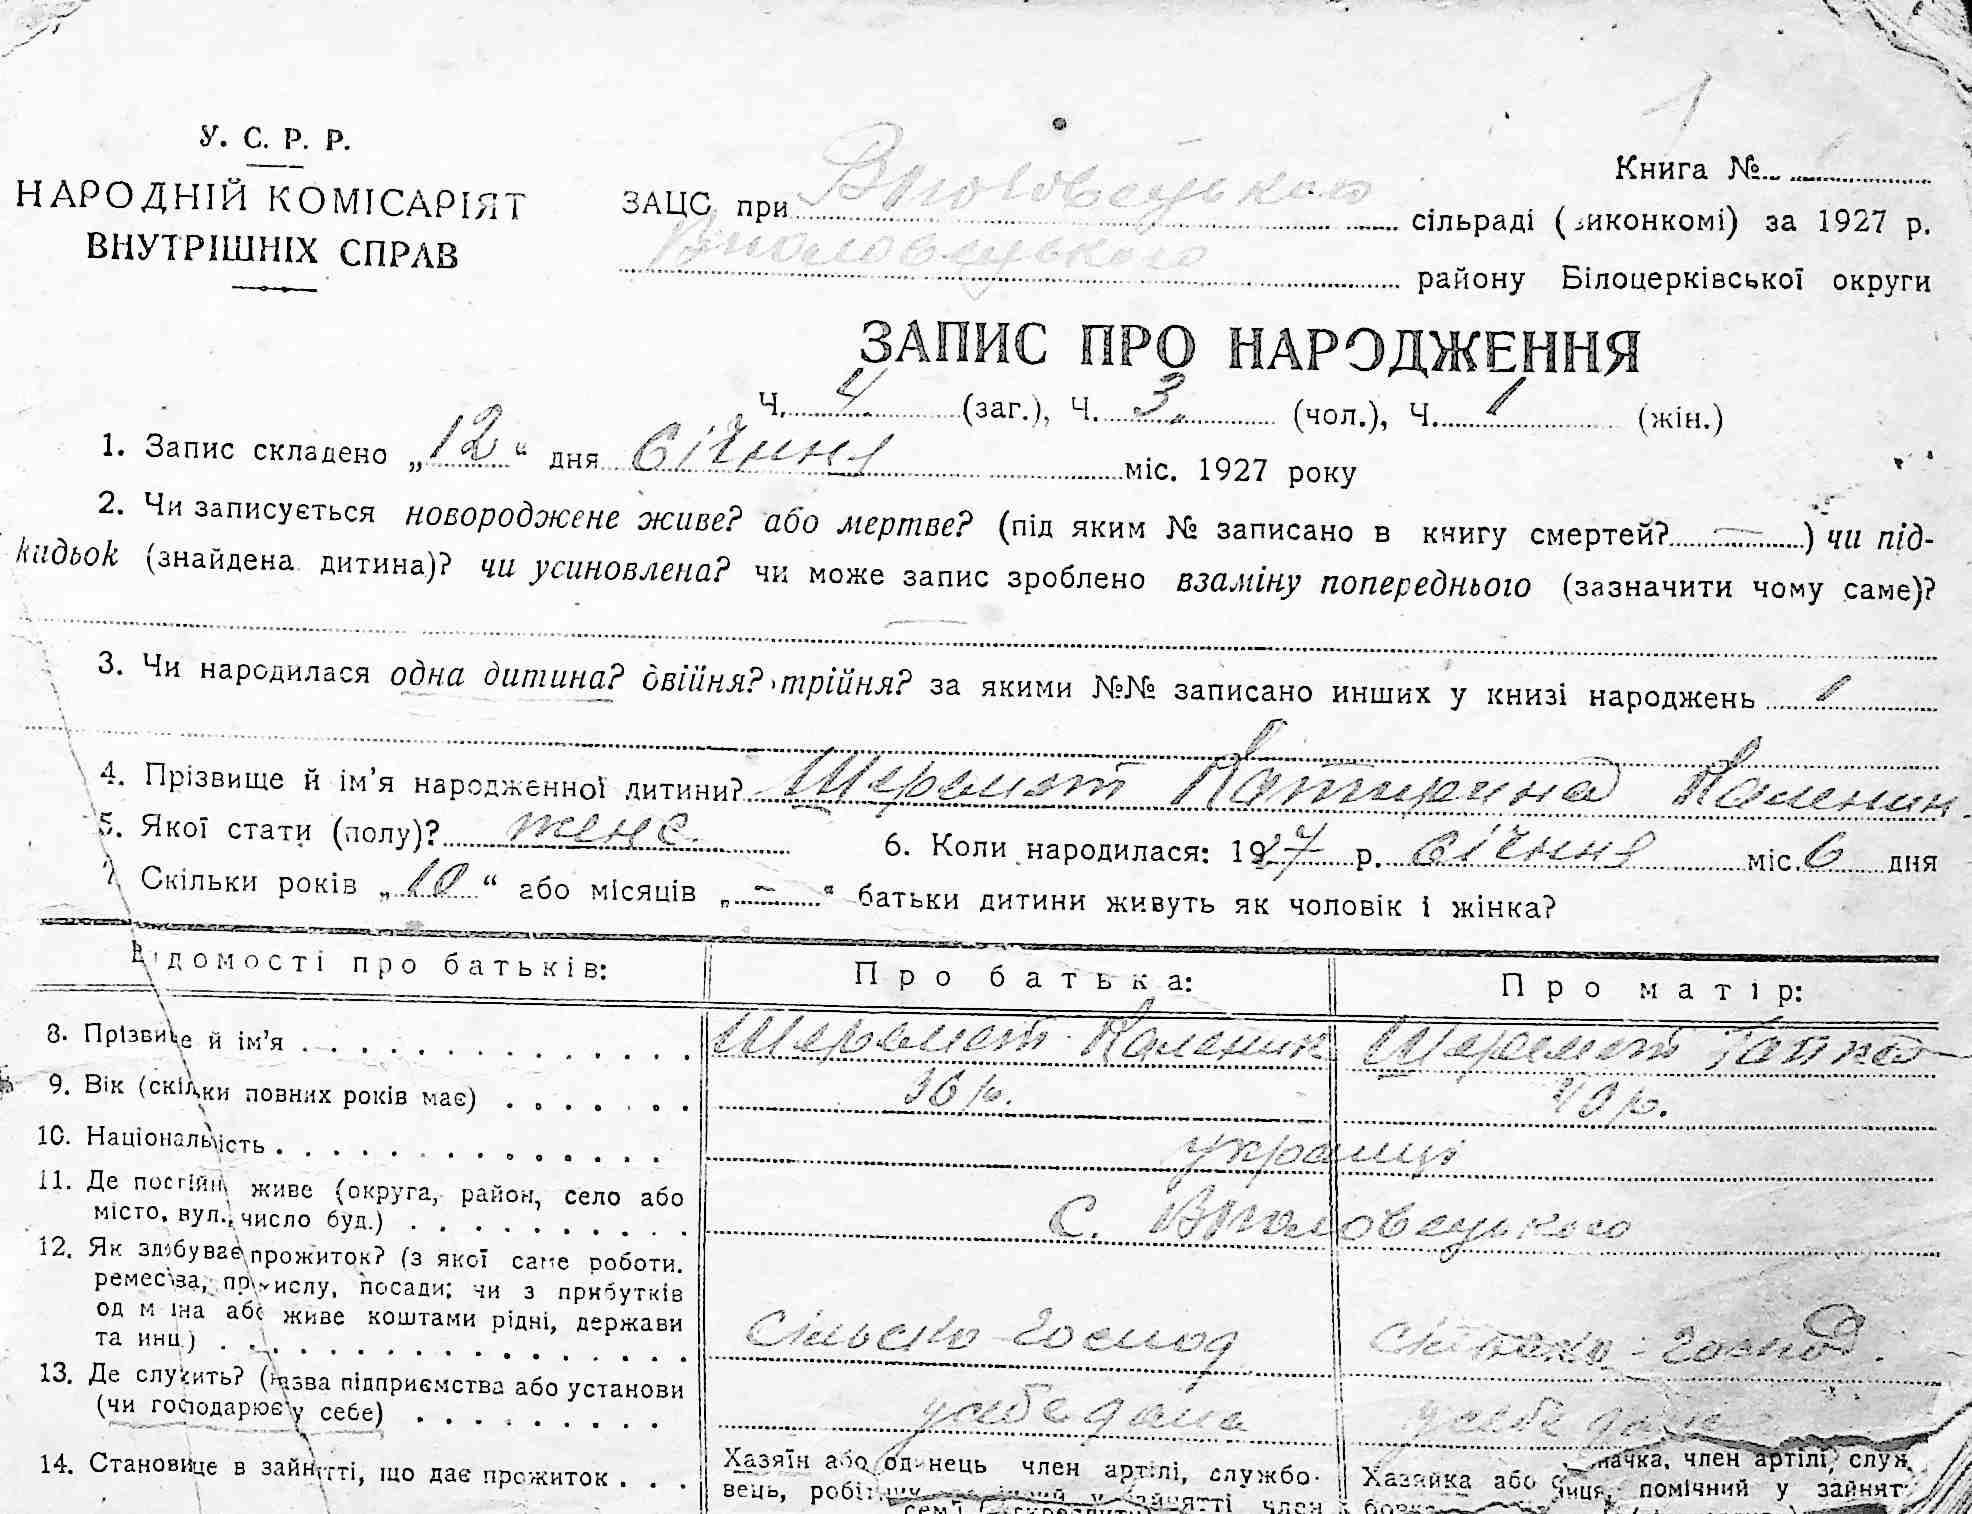 1
У. С. Р. Р.
НАРОДНІЙ КОМІСАРІЯТ
ВНУТРІШНІХ СПРАВ
Книга №
ЗАЦС при сільраді (виконкомі) за 1927 р.
району Білоцерківської округи
ЗАПИС ПРО НАРОДЖЕННЯ
Ч. 4. (заг.), Ч. 3. (чол.), Ч. 1 (жін.)
1. Запис складено „12“ дня січння міс. 1927 року
2. Чи записується новороджене живе? або мертве? (під яким № записано в книгу смертей? —) чи під-
кидьок (знайдена дитина)? чи усиновлена? чи може запис зроблено взаміну попереднього (зазначити чому саме)?
—
3. Чи народилася одна дитина? двійня? трійня? за якими №№ записано инших у книзі народжень 1
4. Прізвище й ім’я народженної дитини? Шеремет Катирина Каленик.
5. Якої стати (полу)? жене. 6. Коли народилася: 1927 р. січння міс. 6 дня
7. Скільки років „10“ або місяців „–“ батьки дитини живуть як чоловік і жінка?
Відомості про батьків: Про батька: Про матір:
8. Прізвище й ім’я Шеремет Каленик Шеремет Гапка
9. Вік (скільки повних років має) 36 р. 40 р.
10. Національність українці
11. Де постійно живе (округа, район, село або
місто, вул., число буд.) с.
12. Як здобуває прожиток? (з якої саме роботи.
ремесгва, промислу, посади; чи з прибутків
од майна або живе коштами рідні, держави
та инш.) сільсько-господ сільсько-господ.
13. Де служить? (назва підприємства або установи
(чи господарює у себе) у себе дома у себе дома
14. Становище в зайнятті, що дає прожиток . . . Хазяїн або одинець член артілі, службо-
вець, робітник зайнятті член
Хазяйка або одиниця, член артілі, служ
помічний у зайнят